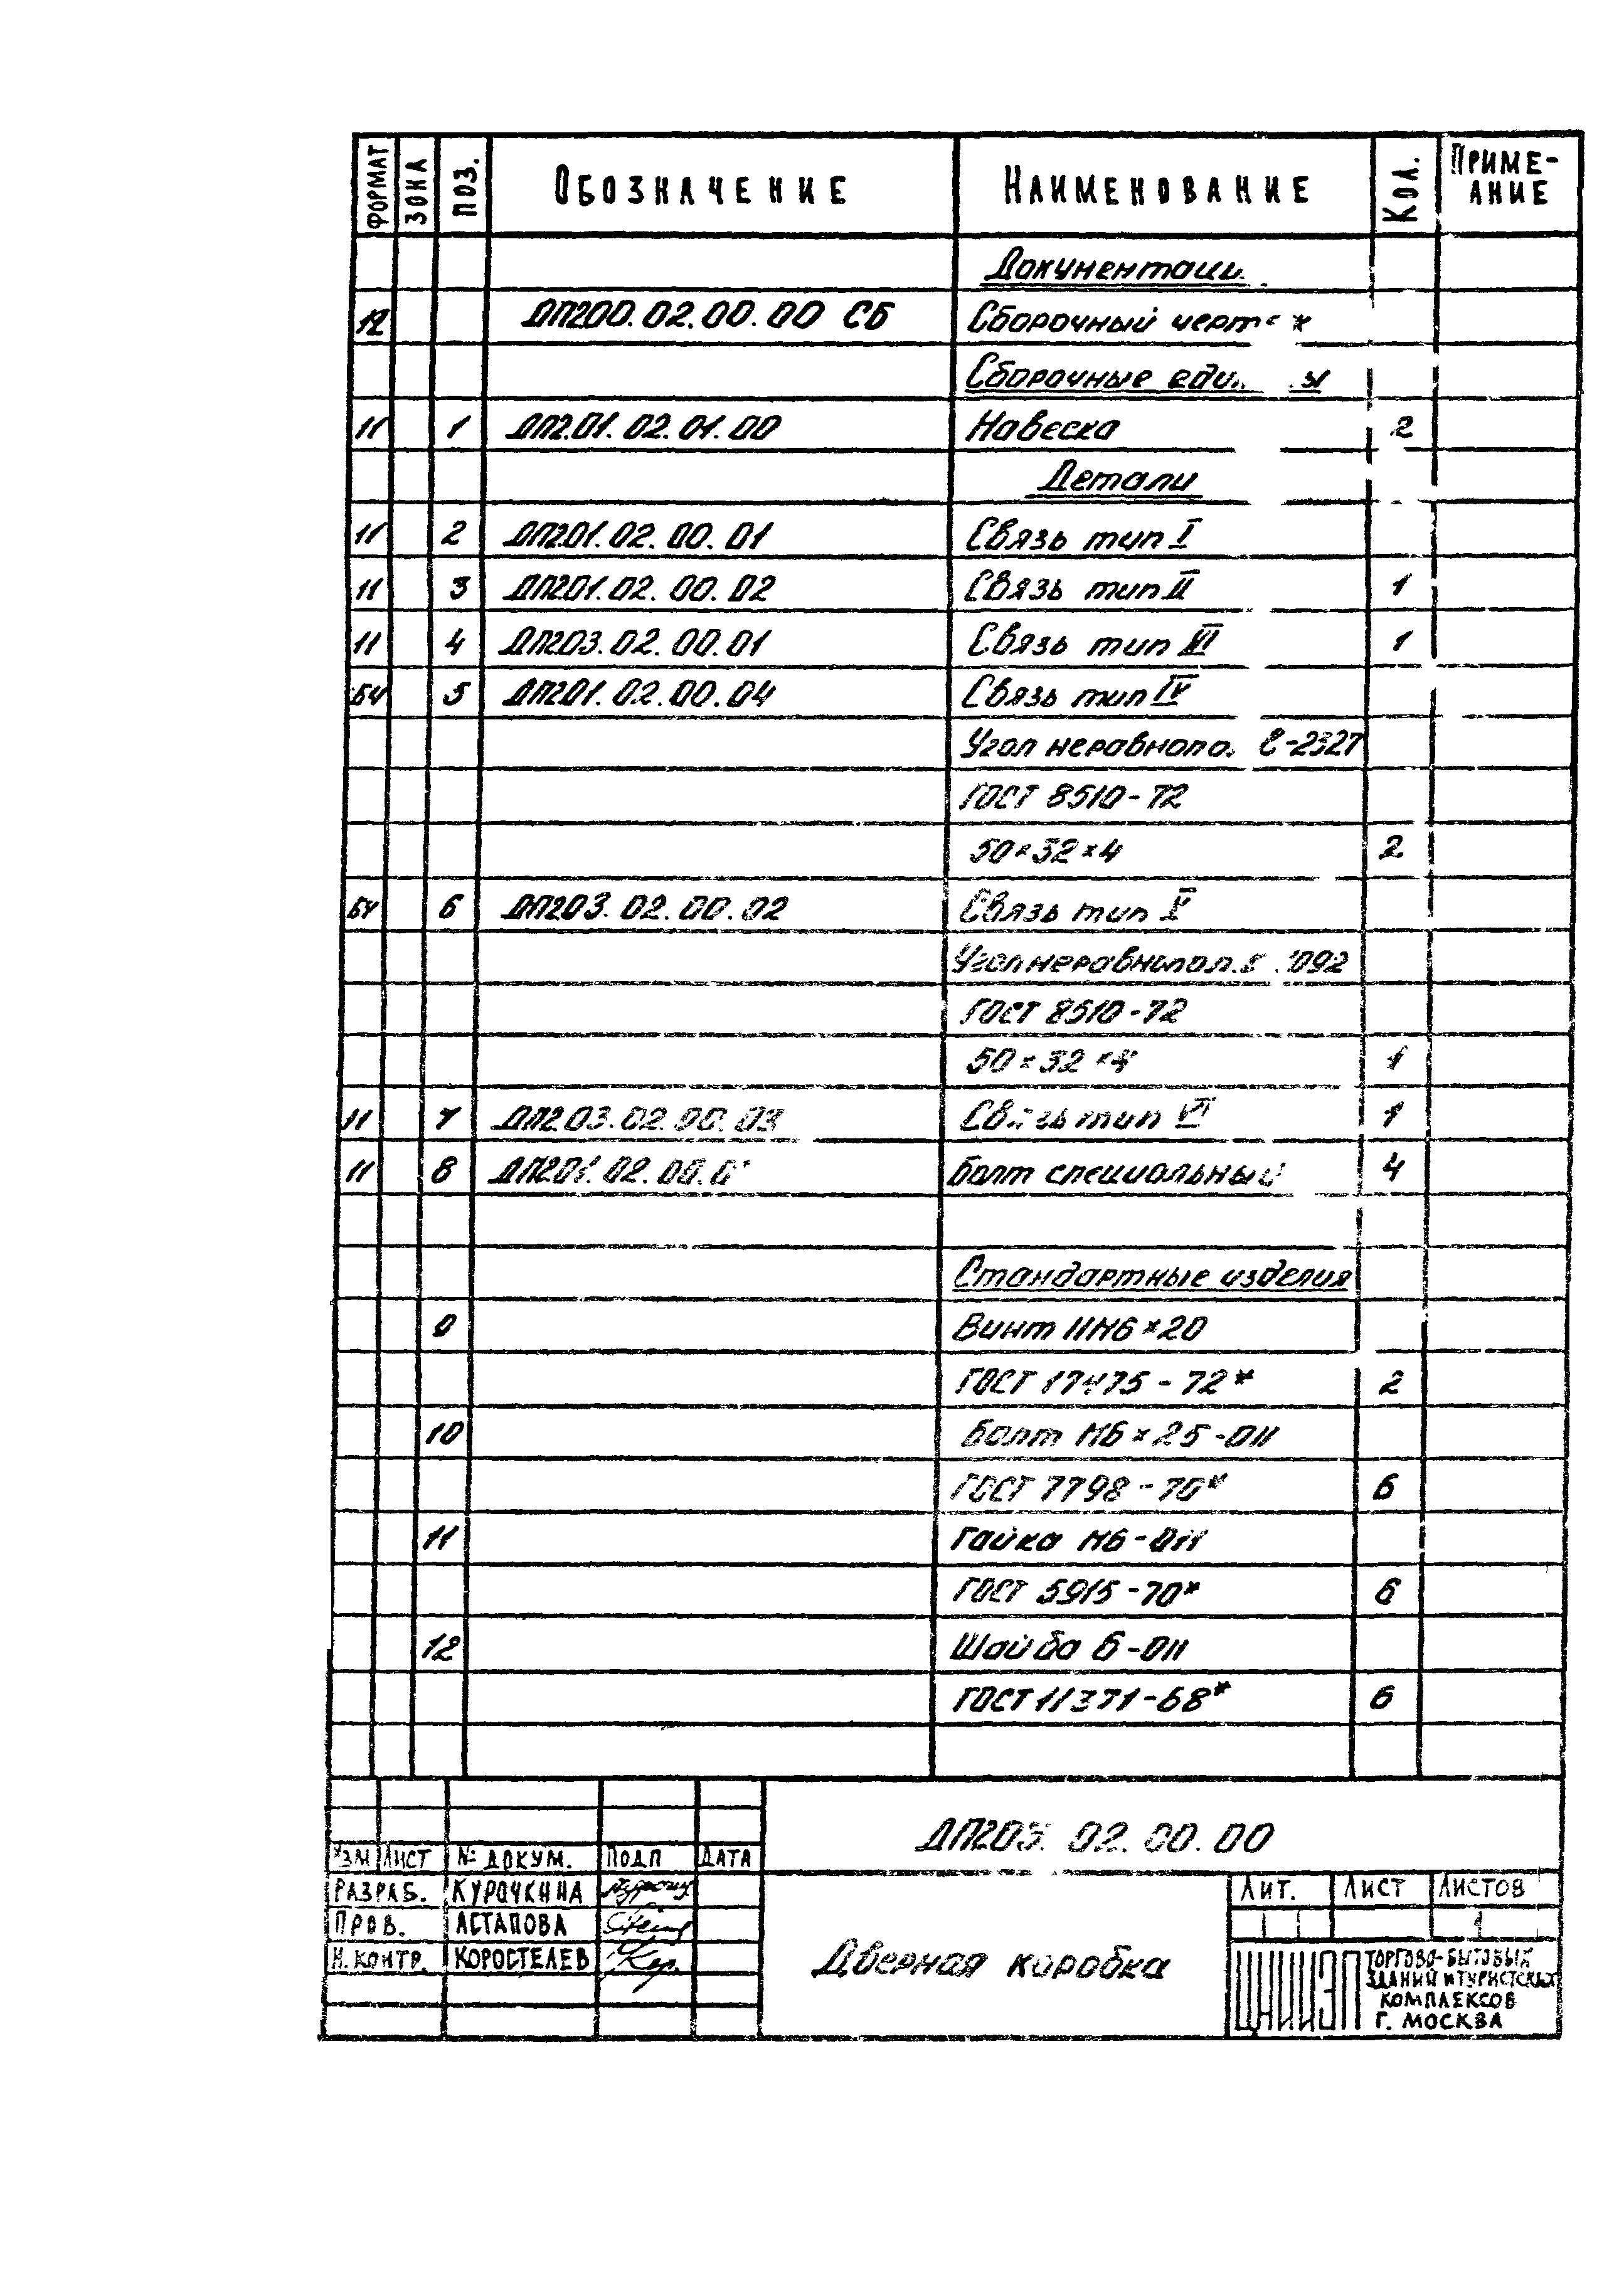 ФОРМАТ ЗОНА ПОЗ. ОБОЗНАЧЕНИЕ НАИМЕНОВАНИЕ КОЛ. ПРИМЕ-
АНИЕ
Документаци
12 ДП200.02.00.00 СБ Сборочный чертеж
Сборочные единицы
11 1 ДП201.02.01.00 Навеска 2
Детали
11 2 ДП201.02.00.01 Связь тип I
11 3 ДП201.02.00.02 Связь тип II 1
11 4 ДП203.02.00.01 Связь тип 1
БЧ 5 ДП201.02.00.04 Связь тип IV
Угол неравнопо. ℓ-2327
ГОСТ 8510-72
50×32×4 2
БЧ 6 ДП203.02.00.02 Связь тип V
Угол неравнопол. 1092
ГОСТ 8510-72
50×32×4 1
11 7 ДП203.02.00.03 Связь тип VI 1
11 8 Болт специальный 4
Стандартные изделия
9 Винт IIМ6×20
ГОСТ 17475-72* 2
10 Болт М6×25-011
ГОСТ 7798-70* 6
11 Гайка М6-011
ГОСТ 5915-70* 6
12 Шайба 6-011
ГОСТ 11371-68* 6
ДП203.02.00.00
ИЗМ ЛИСТ № ДОКУМ. ПОДП ДАТА
РАЗРАБ. КУРОЧКИНА
ПРОВ. АСТАПОВА
Н. КОНТР. КОРОСТЕЛЕВ
Дверная коробка
ЛИТ. ЛИСТ ЛИСТОВ
1
ЦНИИЭП ТОРГОВО-БЫТОВЫХ
ЗДАНИЙ И ТУРИСТСКИХ
КОМПЛЕКСОВ
Г. МОСКВА